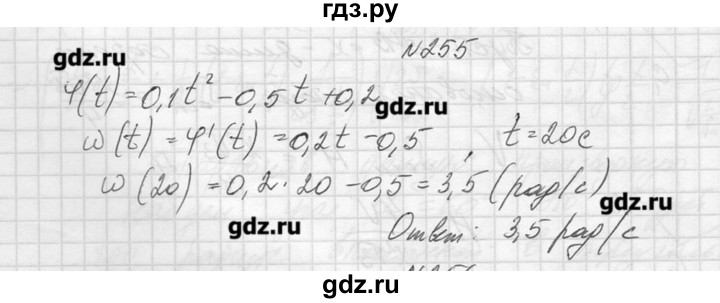 гдз.ру
№255
gdz.ru
φ(t)=0,1t²-0,5t+0,2
gdz.ru
ω(t)=φ'(t)=0,2t-0,5, t=20c
ω(20)=0,2·20-0,5=3,5(рад/с)
gdz.ru
gdz.ru
Ответ: 3,5 рад/с
gdz.ru